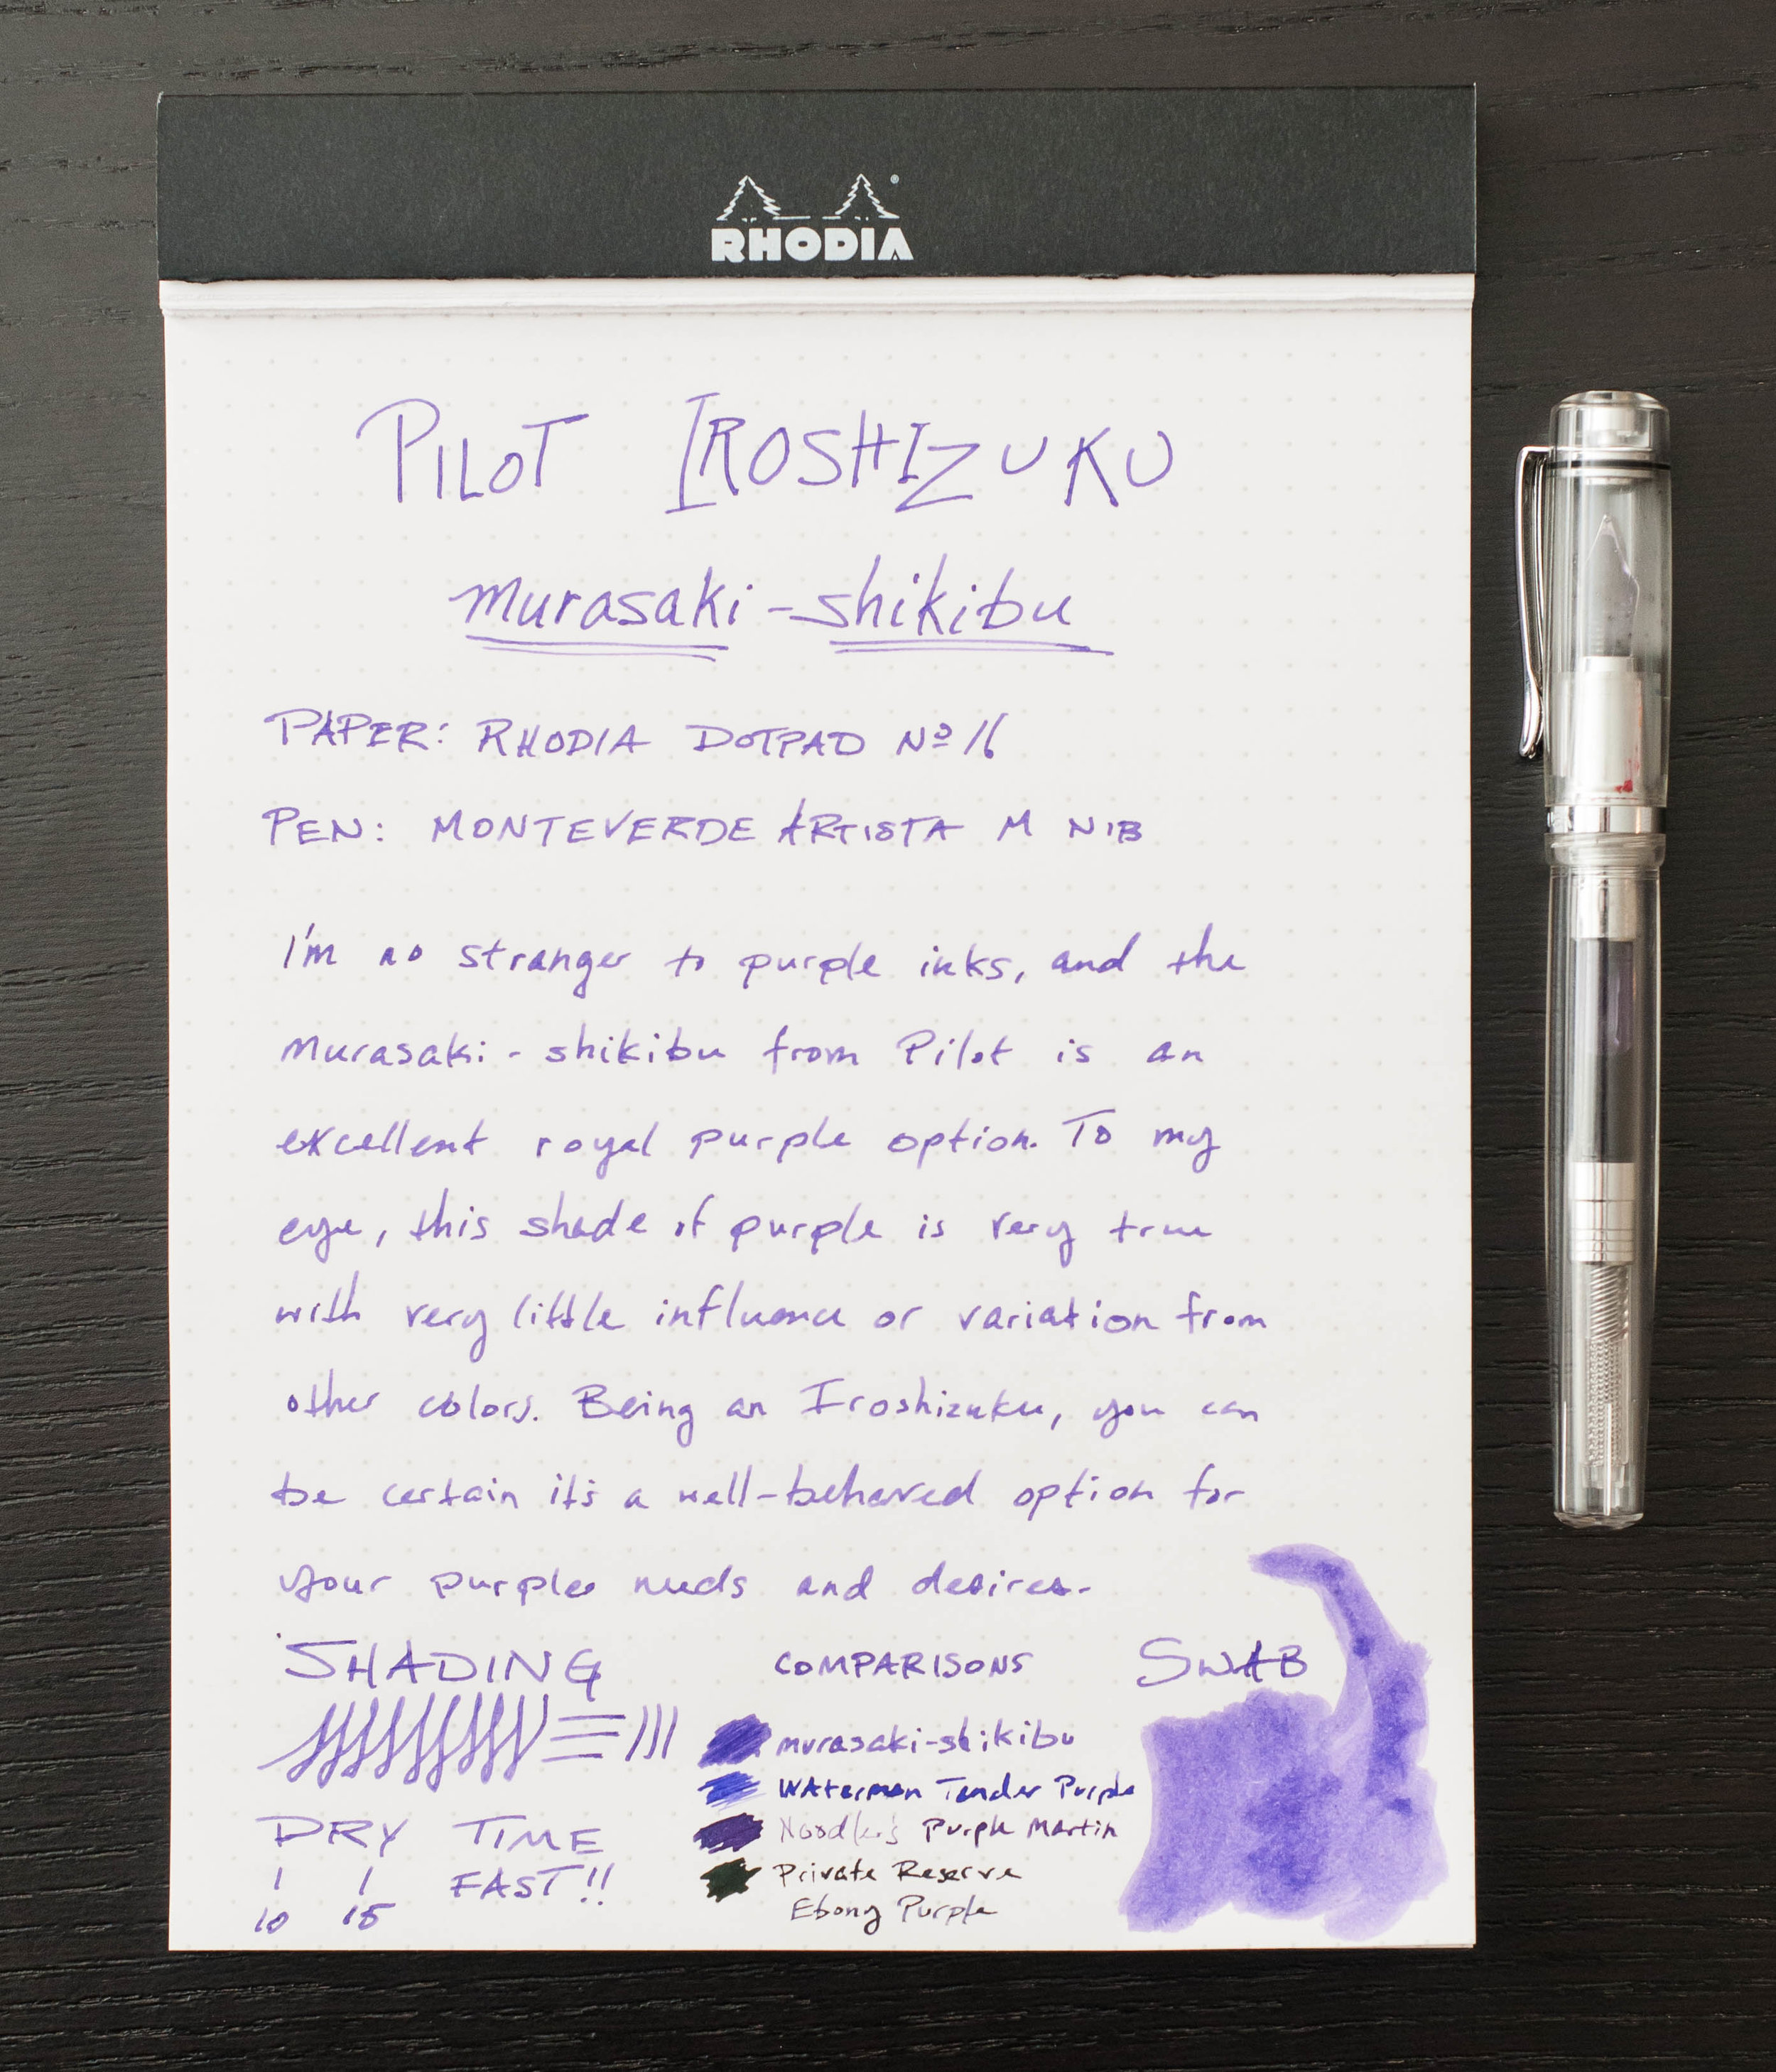 RHODIA
PILOT IROSHIZUKU
murasaki-shikibu
PAPER: RHODIA DOTPAD Nº 16
PEN: MONTEVERDE ARTISTA M NIB
I'm no stranger to purple inks, and the
murasaki-shikibu from Pilot is an
excellent royal purple option. To my
eye, this shade of purple is very true
with very little influence or variation from
other colors. Being an Iroshizuku, you can
be certain it's a well-behaved option for
your purple needs and desires.
SHADING
DRY TIME
FAST!!
10 15
COMPARISONS
murasaki-shikibu
Waterman Tender Purple
Noodler's Purple Martin
Private Reserve
Ebony Purple
SWAB